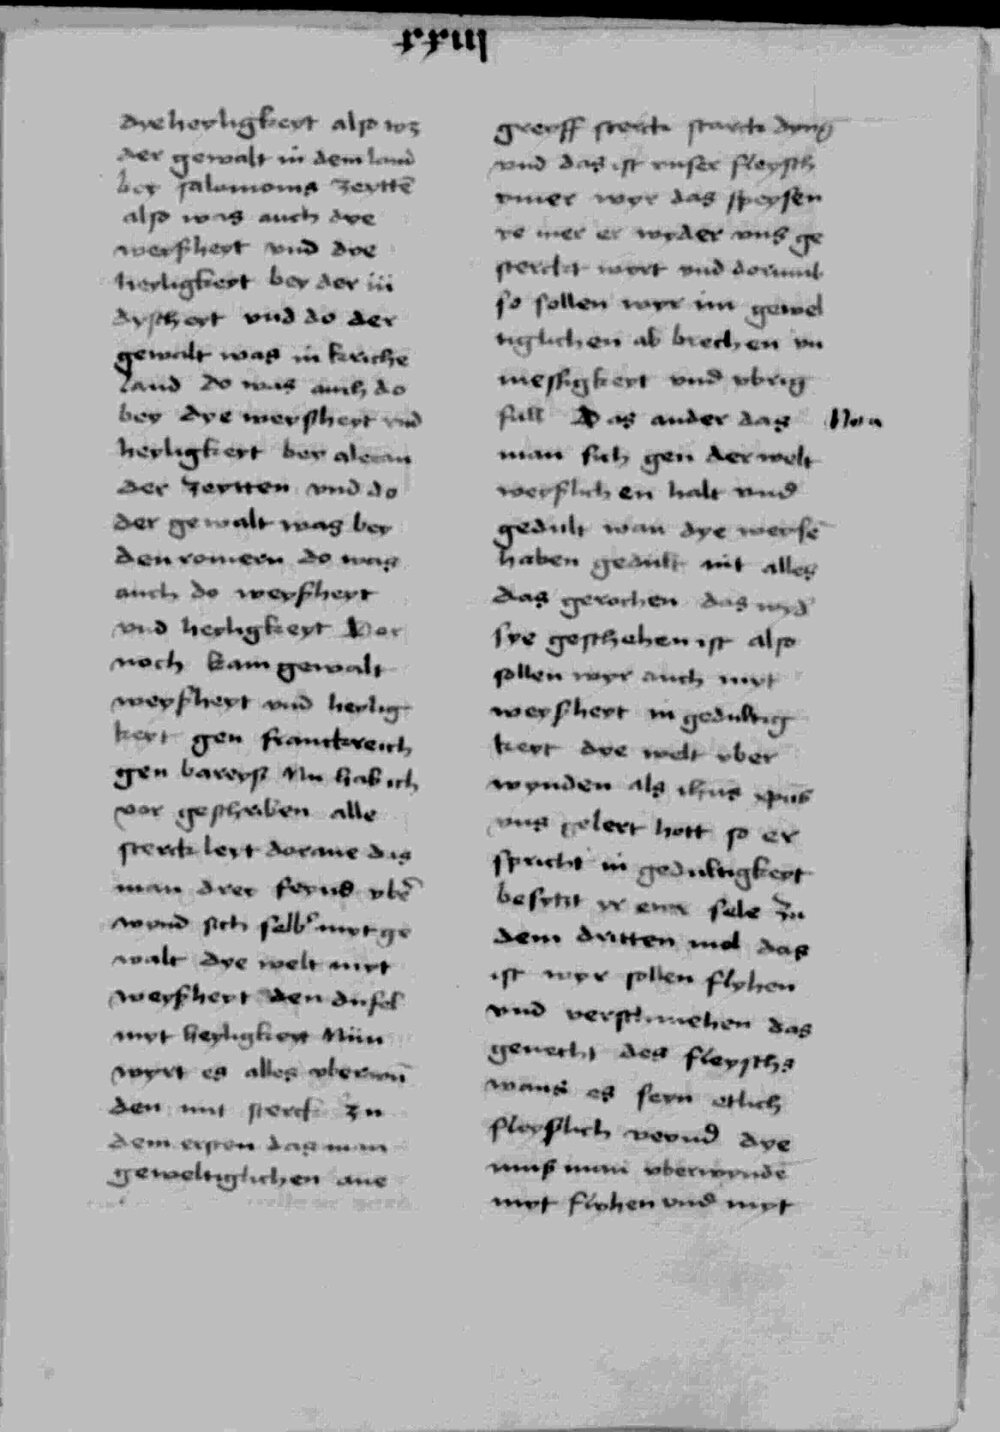 dye heyligkeyt also wz
der gewalt in dem land
bey salomons zeyttē
also was auch dye
weysheyt vnd dye
heyligkeyt bey der iii
dyscheyt vnd do der
gewalt was in kriche
land do was auch do
bey dye weysheyt vnd
heyligkeyt bey alexan
der zeytten vnd do
der gewalt was bey
den romern do was
auch do weysheyt
vnd heyligkeyt Dar
noch kam gewalt
weysheyt vnd heylig
keyt gen franckreich
gen bareys Nu hab ich
vor geschriben alle
sterck leyt dorane das
man drey feynd vbē
wynd sich selbs myt ge
walt dye welt myt
weysheyt den dufel
myt heyligkeyt Nün
wyrt es alles vberwū
den mit sterck zu
dem ersten das man
geweltiglichen ane
greyff sterck starck dyng
vnd das ist vnser fleysch
ymer wyr das speysen
ye mer er wyder vns ge
sterckt wyrt vnd dorumb
so sollen wyr im gewel
tiglichen ab brechen vn
messigkeyt vnd vbrig
full Das ander das
man sich gen der welt
weyslichen halt vnd
gedult wan dye weysē
haben gedult mit alles
das gerochen das wyd
sye geschehen ist also
sollen wyr auch myt
weysheyt in gedultig
keyt dye welt vber
wynden als ihus xpūs
vns gelert hott so er
spricht in gedultigkeyt
besytzt yr ewr sele Zu
dem dritten mol das
ist wyr sollen flyhen
vnd verschmehen das
gemecht des fleyschs
wans es seyn etlich
fleyslich veynd dye
mus man vberwyndē
myt flyhen vnd myt